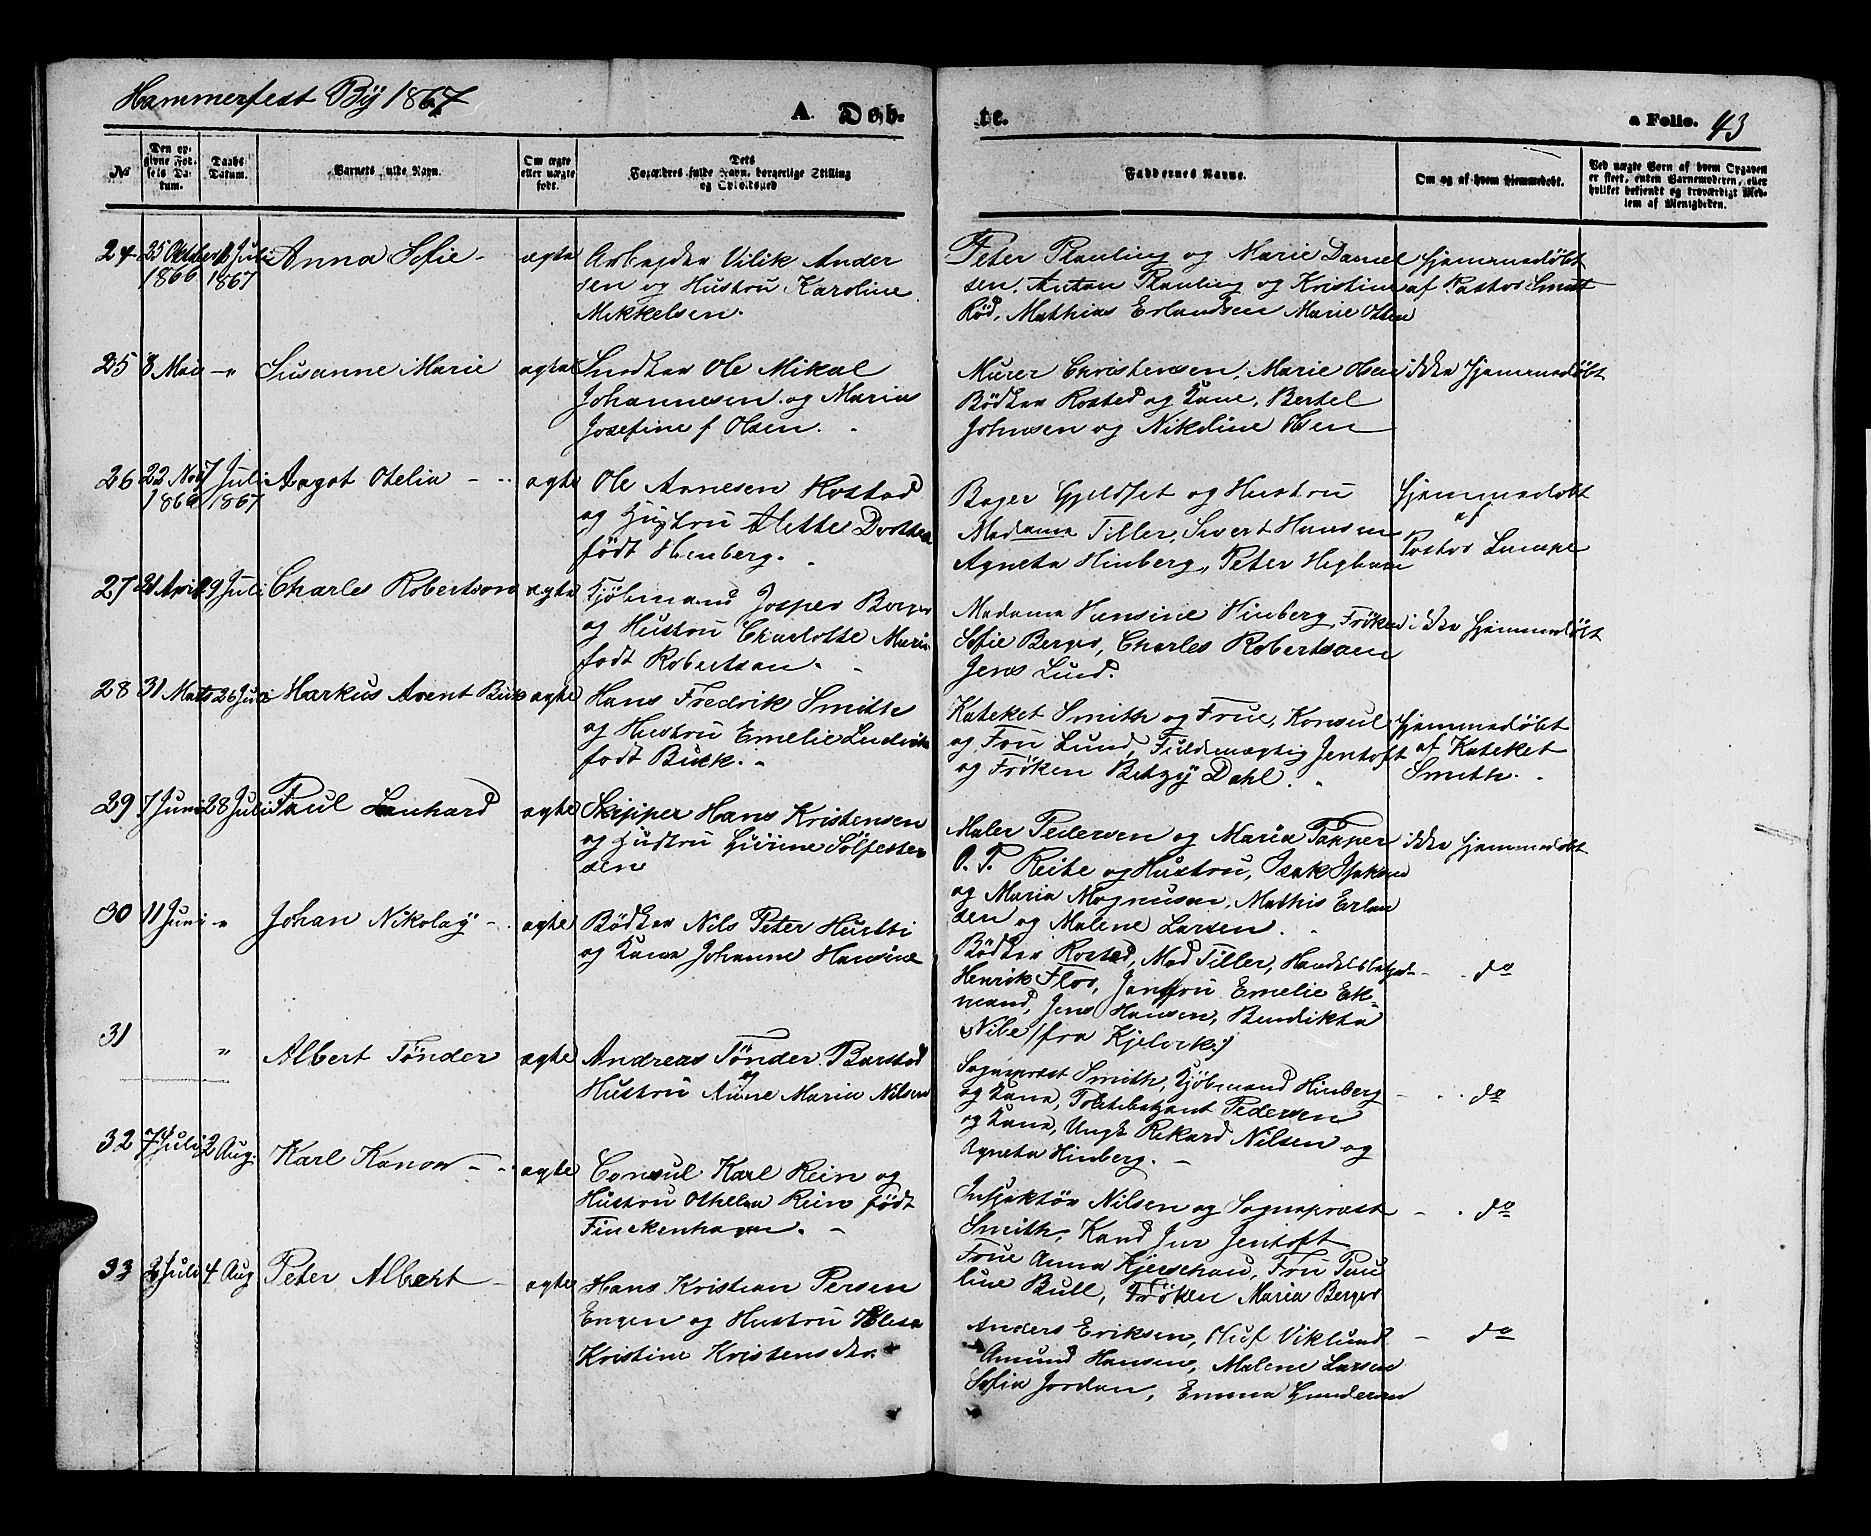 Hammerfest By 1867
A. Døb-
te.
a Folio. 43
No
Den opgivne Fødsels Datum.
Daabs Datum.
Barnets fulde Navn.
Om ægte eller uægte født.
Forældres fulde Navn, borgerlige Stilling og Opholdssted
Faddernes Navne.
Om og af hvem hjemmedøbt.
Ved uægte Børn af hvem Opgaven er skeet, enten Barnemoderen, eller hvilket bekjendt og troværdigt Medlem af Menigheden.
24 25 Oktober 1866 Juli 1867 Anna Sofie - ægte
Arbejder Vilik Ander
sen og Hustru Karoline
Mikkelsen.
Peter Plauting og Marie Daniel
sen. Anton Plauting og Kristine
Rød, Mathias Erlandsen Marie Olsen
Hjemmedøbt
af Pastor Smitt
25 8 Mai -"- Susanne Marie ægte
Snedker Ole Mikal
Johannesen og Marias
Josefine f Olsen.
Murer Christensen, Marie Olsen
Bødker Rosted og Kone, Bertel
Johnsen og Nikoline Olsen
ikke hjemmedøbt
26 22 Nov 1866 7 Juli 1867 Aagot Otelia - ægte
Ole Arnesen Rostad
og Hustru Alette Dorthea
født Hinberg.
Bager Gjeldset og Hustru
Madame Tiller, Sivert Hansen
Agneta Hinberg, Peter
Hjemmedøbt
af
Pastor Lampe
27 21 April 9 Juli Charles Robertson ægte
Kjøbmand Jesper Berger
og Hustru Charlotte Marie
født Robertson.
Madame Hansine Hinberg, Frøken
Sofie Berger, Charles Robertsoen
Jens Lund.
ikke hjemmedøbt
28 31 Marts 26 Juli Markus Avent Buck ægte
Hans Fredrik Smith
og Hustru Emelie Ludvika
født Buck.
Kateket Smith og Frue, Konsul
og Fru Lund, Fuldmægtig Jentoft
og Frøken Betzy Dahl.
Hjemmedøbt
af Kateket
Smith.
29 7 Juni 28 Juli Paul Lenhard ægte
Skipper Hans Kristensen
og Hustru Gurine Sølfester
sen
Maler Pedersen og Maria Tapper
O. P. Reibe og Hustru, Isak Isaksen
og Maria Magnusen, Mathis Erlan
sen og Malene Larsen.
ikke hjemmedøbt
30 11 Juni -"- Johan Nikolay - ægte
Bødker Nils Peter Hurtti
og Kone Johanne Hansine
Bødker Rosted, Mad Tiller, Handelsbetjent
Henrik Flor, Jomfru Emelie Ek-
mand, Jens Hansen, Bendikta
Nibe /fra Kjelvik/
- do
31 " Albert Tönder ægte
Andreas Tönder Barstad
og
Hustru Anne Maria Nilsen
Sogneprest Smith, Kjøbmand Hinberg
og Kone, Politibetjent Pedersen
og Kone, Ungk Rikard Nilsen og
Agneta Hinberg. -
- do
32 7 Juli 2 Aug. Karl Kanow - ægte
Consul Karl Rein og
Hustru Othelea Rein født
Finckenhagen. -
Inspektör Nilsen og Sogneprest
Smith, Kand Jur Jentoft
Frue Anna Kjerschau, Fru Pau
line Bull, Frøken Maria Berger
- do
33 2 Juli 4 Aug Peter Albert - ægte
Hans Kristian Persen
Engen og Hustru
Kristine Kristensdtr.
Anders Eriksen, Oluf Viklund
Amund Hansen, Malene Larsen
Sofia Jordan, Emma Gundersen
- do